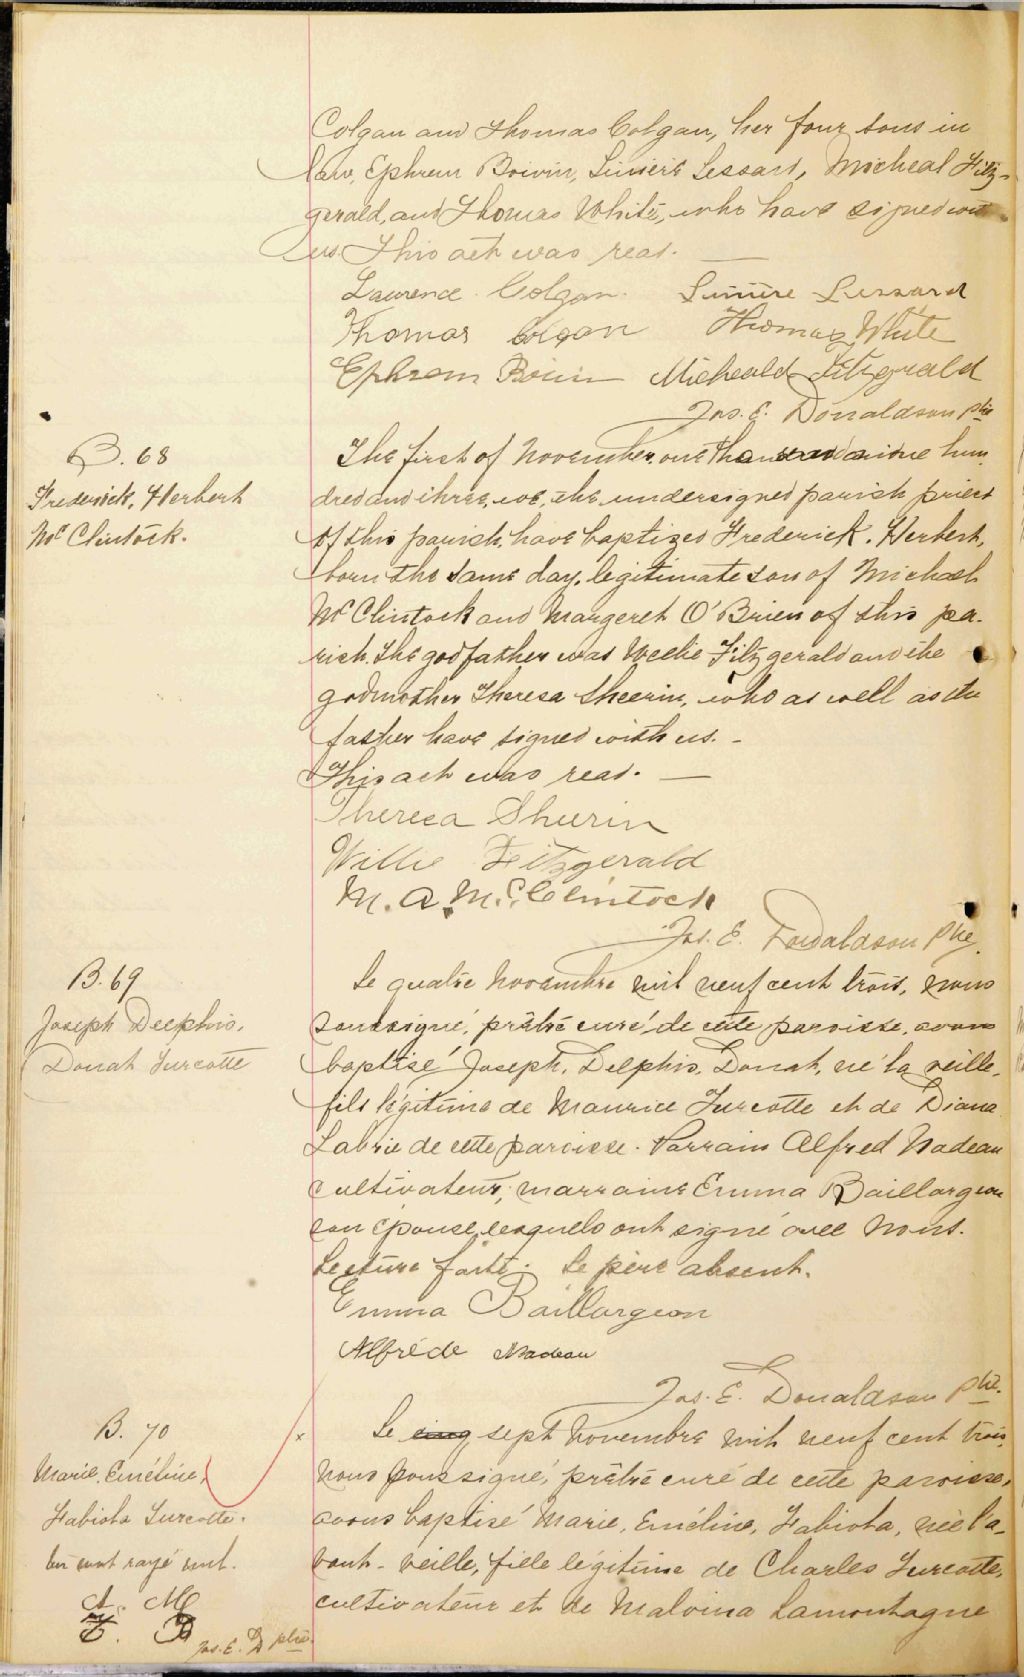 Colgan and Thomas Colgan, her four sons in
law, Ephrem Boivin, Linière Lessard, Micheal Fitz-
gerald, and Thomas White, who have signed with
us. This act was read. —
Laurence Colgan. Linière Lessard
Thomas Colgan Thomas White
Ephrem Boivin Micheald Fitzgerald
Jos. E. Donaldson ptre
B. 68
Frederick, Herbert
McClintock.
The first of November, one thousand nine hun-
dred and three, we, the undersigned parish priest
of this parish, have baptized Frederick, Herbert,
born the same day, legitimate son of Michael
McClintock and Margeret O'Brien of this pa-
rish. The godfather was Weelie Fitzgerald and the
godmother Theresa Sheerin, who as well as the
father have signed with us. -
This act was read. —
Theresa Sheerin
Willie Fitzgerald
M. A. McClintock
Jos. E. Donaldson ptre
B. 69
Joseph Delphis,
Donat Turcotte
Le quatre novembre mil neuf cent trois, nous
soussigné, prêtre curé, de cette paroisse, avons
baptisé Joseph, Delphis, Donat, né la veille,
fils légitime de Maurice Turcotte et de Diana
Labrie de cette paroisse. Parrain Alfred Nadeau
cultivateur, marraine Emma Baillargeon
son épouse, lesquels ont signé avec nous.
Lecture faite. Le père absent.
Emma Baillargeon
Alfréde Nadeau
Jos. E. Donaldson ptre.
B. 70
Marie, Eméline,
Fabiola Turcotte.
Un mot rayé nul.
A. M.
F. B
Jos. E. D ptre.
x Le cinq sept novembre mil neuf cent trois,
nous soussigné, prêtre curé de cette paroisse,
avons baptisé Marie, Eméline, Fabiola, née l'a-
vant-veille, fille légitime de Charles Turcotte,
cultivateur et de Malvina Lamontagne